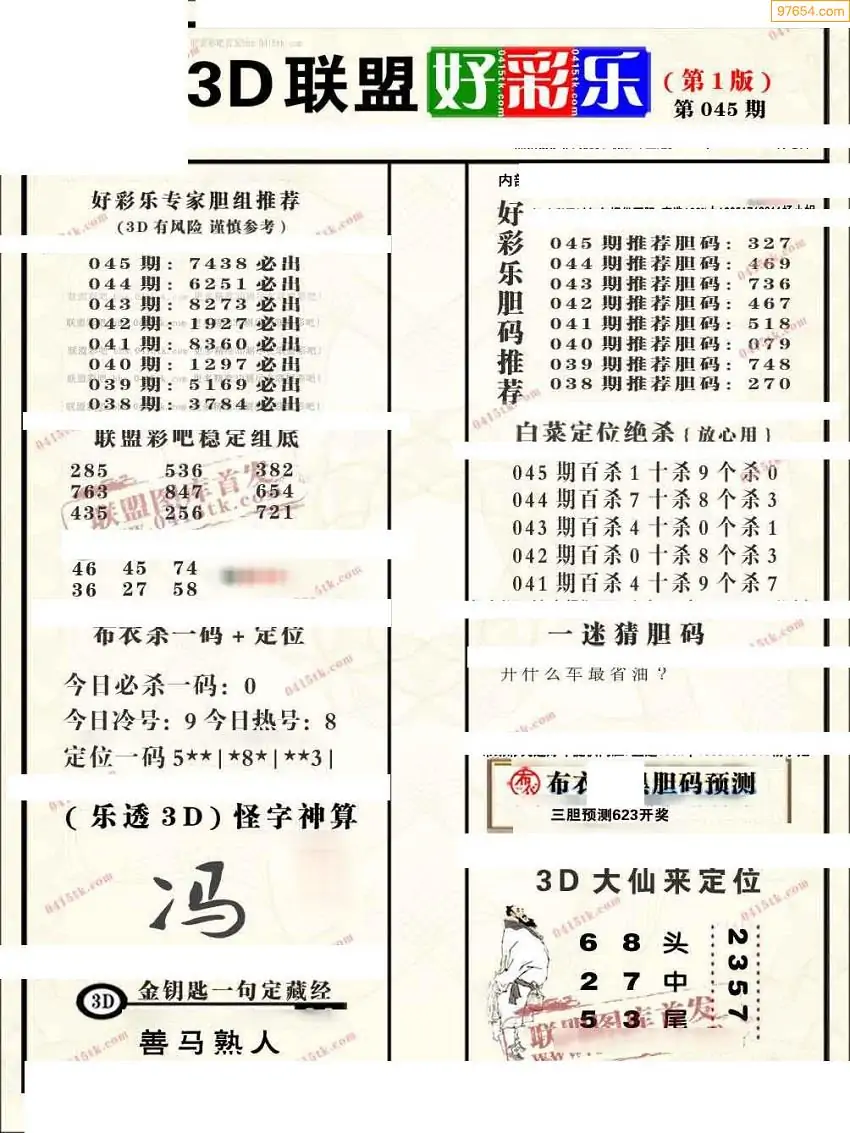 97654.com
3D联盟好彩乐(第1版)
第045期
好彩乐专家胆组推荐
(3D有风险 谨慎参考)
045期:7438必出
044期:6251必出
043期:8273必出
042期:1927必出
041期:8360必出
040期:1297必出
039期:5169必出
038期:3784必出
联盟彩吧稳定组底
285 536 382
763 847 654
435 256 721
46 45 74
36 27 58
布衣杀一码+定位
今日必杀一码:0
今日冷号:9今日热号:8
定位一码5**|*8*|**3|
(乐透3D)怪字神算
冯
3D 金钥匙一句定藏经
善马熟人
好彩乐胆码推荐
045期推荐胆码:327
044期推荐胆码:469
043期推荐胆码:736
042期推荐胆码:467
041期推荐胆码:518
040期推荐胆码:079
039期推荐胆码:748
038期推荐胆码:270
白菜定位绝杀{放心用}
045期百杀1十杀9个杀0
044期百杀7十杀8个杀3
043期百杀4十杀0个杀1
042期百杀0十杀8个杀3
041期百杀4十杀9个杀7
一迷猜胆码
开什么车最省油?
布 布衣 胆码预测
三胆预测623开奖
3D大仙来定位
6 8 头
2 7 中
5 3 尾
2357
联盟图库首发
www.0415tk.com